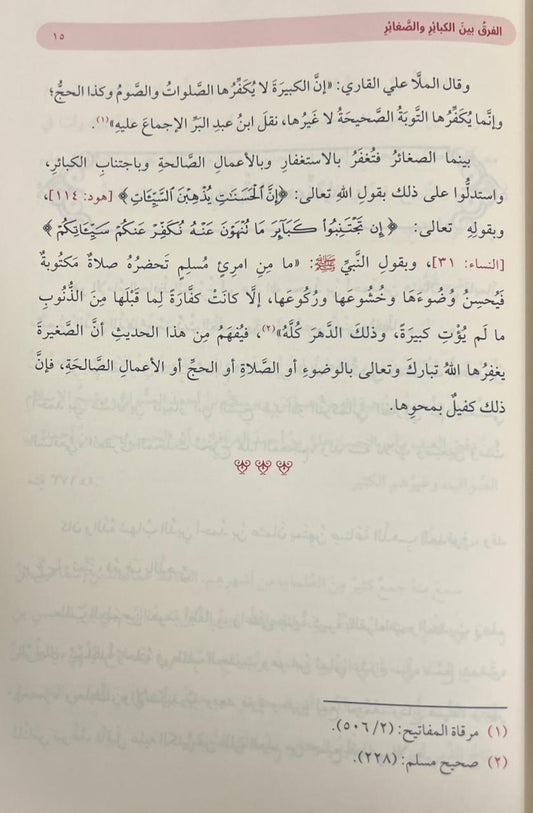 الفرقُ بينَ الكبائِرِ والصَّغائِرِ
١٥
وقال الملَّا علي القاري: «إنَّ الكبيرَةَ لا يُكفِّرُها الصَّلواتُ والصَّومُ وكذا الحجُّ؛
وإنَّما يُكفِّرُها التَّوبَةُ الصَّحيحَةُ لا غَيرُها، نقلَ ابنُ عبدِ البَرِّ الإجماعَ عليهِ»(١).
بينما الصغائرُ فتُغفَرُ بالاستغفارِ وبالأعمالِ الصَّالحةِ وباجتنابِ الكبائرِ،
واستدلُّوا على ذلك بقولِ اللهِ تعالى: ﴿إِنَّ ٱلْحَسَنَٰتِ يُذْهِبْنَ ٱلسَّيِّـَٔاتِ﴾ [هود: ١١٤]،
وبقولِهِ تعالى: ﴿إِن تَجْتَنِبُوا۟ كَبَآئِرَ مَا تُنْهَوْنَ عَنْهُ نُكَفِّرْ عَنكُمْ سَيِّـَٔاتِكُمْ﴾
[النساء: ٣١]، وبقولِ النَّبيِّ ﷺ: «ما مِنِ امرِئٍ مُسلِمٍ تَحضرُهُ صلاةٌ مَكتوبةٌ
فَيُحسِنُ وُضُوءَهَا وخُشُوعَها ورُكُوعَها، إلَّا كانَتْ كفَّارَةً لِما قَبْلَها مِنَ الذُّنُوبِ
ما لَم يُؤْتِ كبيرَةً، وذلكَ الدَّهرَ كُلَّهُ»(٢)، فيُفهَمُ مِن هذا الحديثِ أنَّ الصَّغيرةَ
يغفِرُها اللهُ تباركَ وتعالى بالوضوءِ أو الصَّلاةِ أو الحجِّ أو الأعمالِ الصَّالحَةِ، فإنَّ
ذلك كفيلٌ بمحوِها.
(١) مرقاة المفاتيح: (٢/ ٥٠٦).
(٢) صحيح مسلم: (٢٢٨).